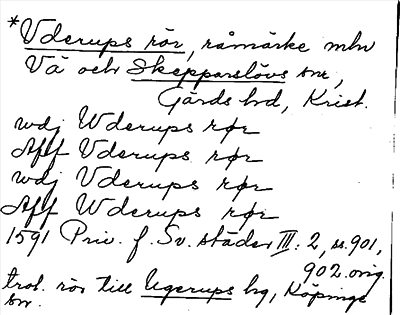 *Vderups rör, råmärke mln
Vä och Skepparslövs snr,
Gärds hd, Krist.
wdj Wderups rør
Aff Vderups rør
wdj Vderups rør
Aff Wderups rør
1591 Priv. f. Sv. städer III: 2, ss. 901,
902. orig.
trol. rör till Ugerups by, Köpinge
sn.